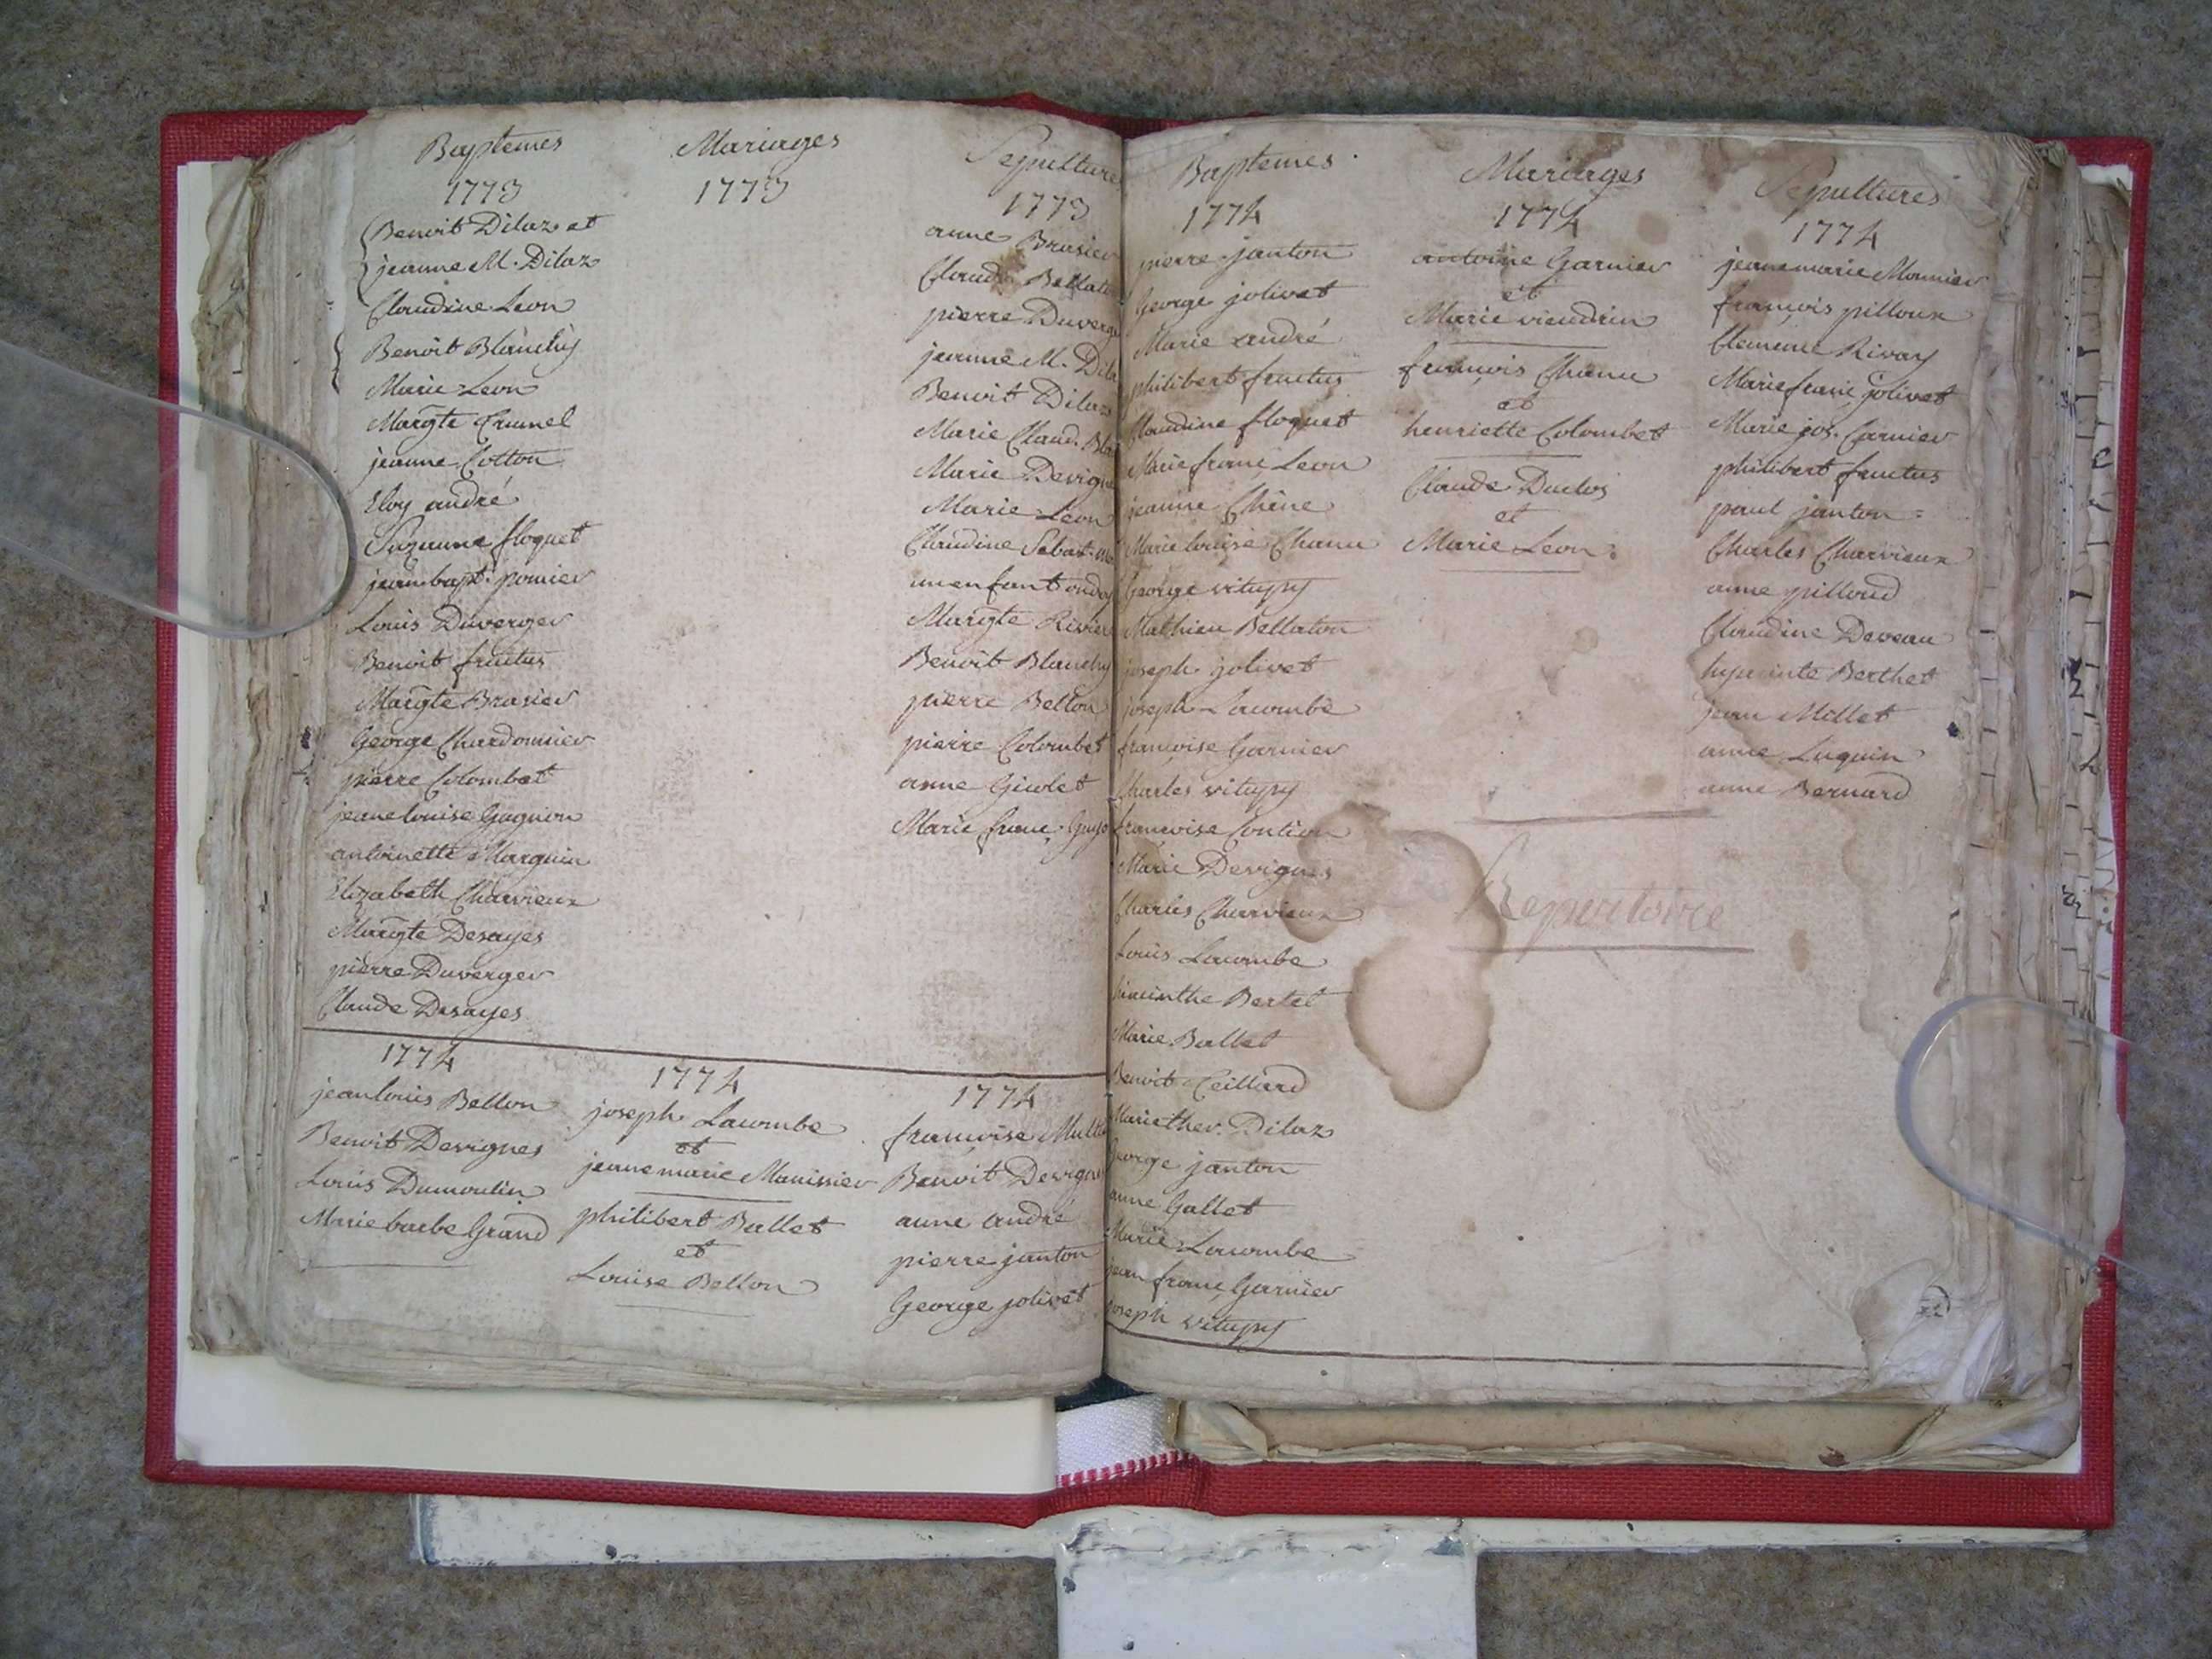 Baptemes
1773
Benoit Dilaz et
jeanne M. Dilaz
Claudine Leon
Benoit Blanchy
Marie Leon
Margte Crunel
jeanne Cotton
Eloy andré
Suzanne floquet
jean bapt. pomier
Louis Duverger
Benoit fructus
Margte Brasier
George Chardonnier
pierre Colombet
jeane louise Gagnion
antoinette Marguin
Elizabeth Charvieux
Margte Desayes
pierre Duverger
Claude Desayes
1774
jean louis Bellon
Benoit Devignes
Louis Dumoulin
Marie barbe Grand
Mariages
1773
1774
joseph Lacombe
et
jeane marie Manissier
philibert Ballet
et
Louise Bellon
Sepultures
1773
anne Brasier
Claud. Bellat
pierre Duverg
jeanne M. Dila
Benoit Dilaz
Marie Claud. Bla
Marie Devigne
Marie Leon
Claudine Sebast.
un enfant ondoy
Margte Rivier
Benoit Blanchy
pierre Bellon
pierre Colombet
anne Giolet
Marie franc. Guyo
1774
francoise Mull
Benoit Devignes
anne andré
pierre janton
George jolivet
Baptemes
1774
pierre janton
George jolivet
Marie andré
philibert fructus
Claudine floquet
Marie franc Leon
jeanne Chêne
Marie louise Chanu
George vitupy
Mathieu Bellaton
joseph jolivet
joseph Lacombe
francoise Garnier
Charles vitupy
francoise Contion
Marie Devignes
Charles Charvieux
Louis Lacombe
hiacinthe Bertet
Marie Ballet
Benoit Ceilliard
Marie ther. Dilaz
George janton
anne Gallet
Marie Lacombe
jean franc Garnier
joseph vitupy
Mariages
1774
antoine Garnier
et
Marie viendrin
francois Chanu
et
henriette Colombet
Claude Duclos
et
Marie Leon
Sepultures
1774
jeane marie Monnier
francois pilloux
Clemence Rivay
Marie franc jolivet
Marie jos. Carnier
philibert fructus
paul janton
Charles Charvieux
anne pilloud
Claudine Deveau
hyacinte Berthet
jean Millet
anne Luquin
anne Bernard
Repertoire